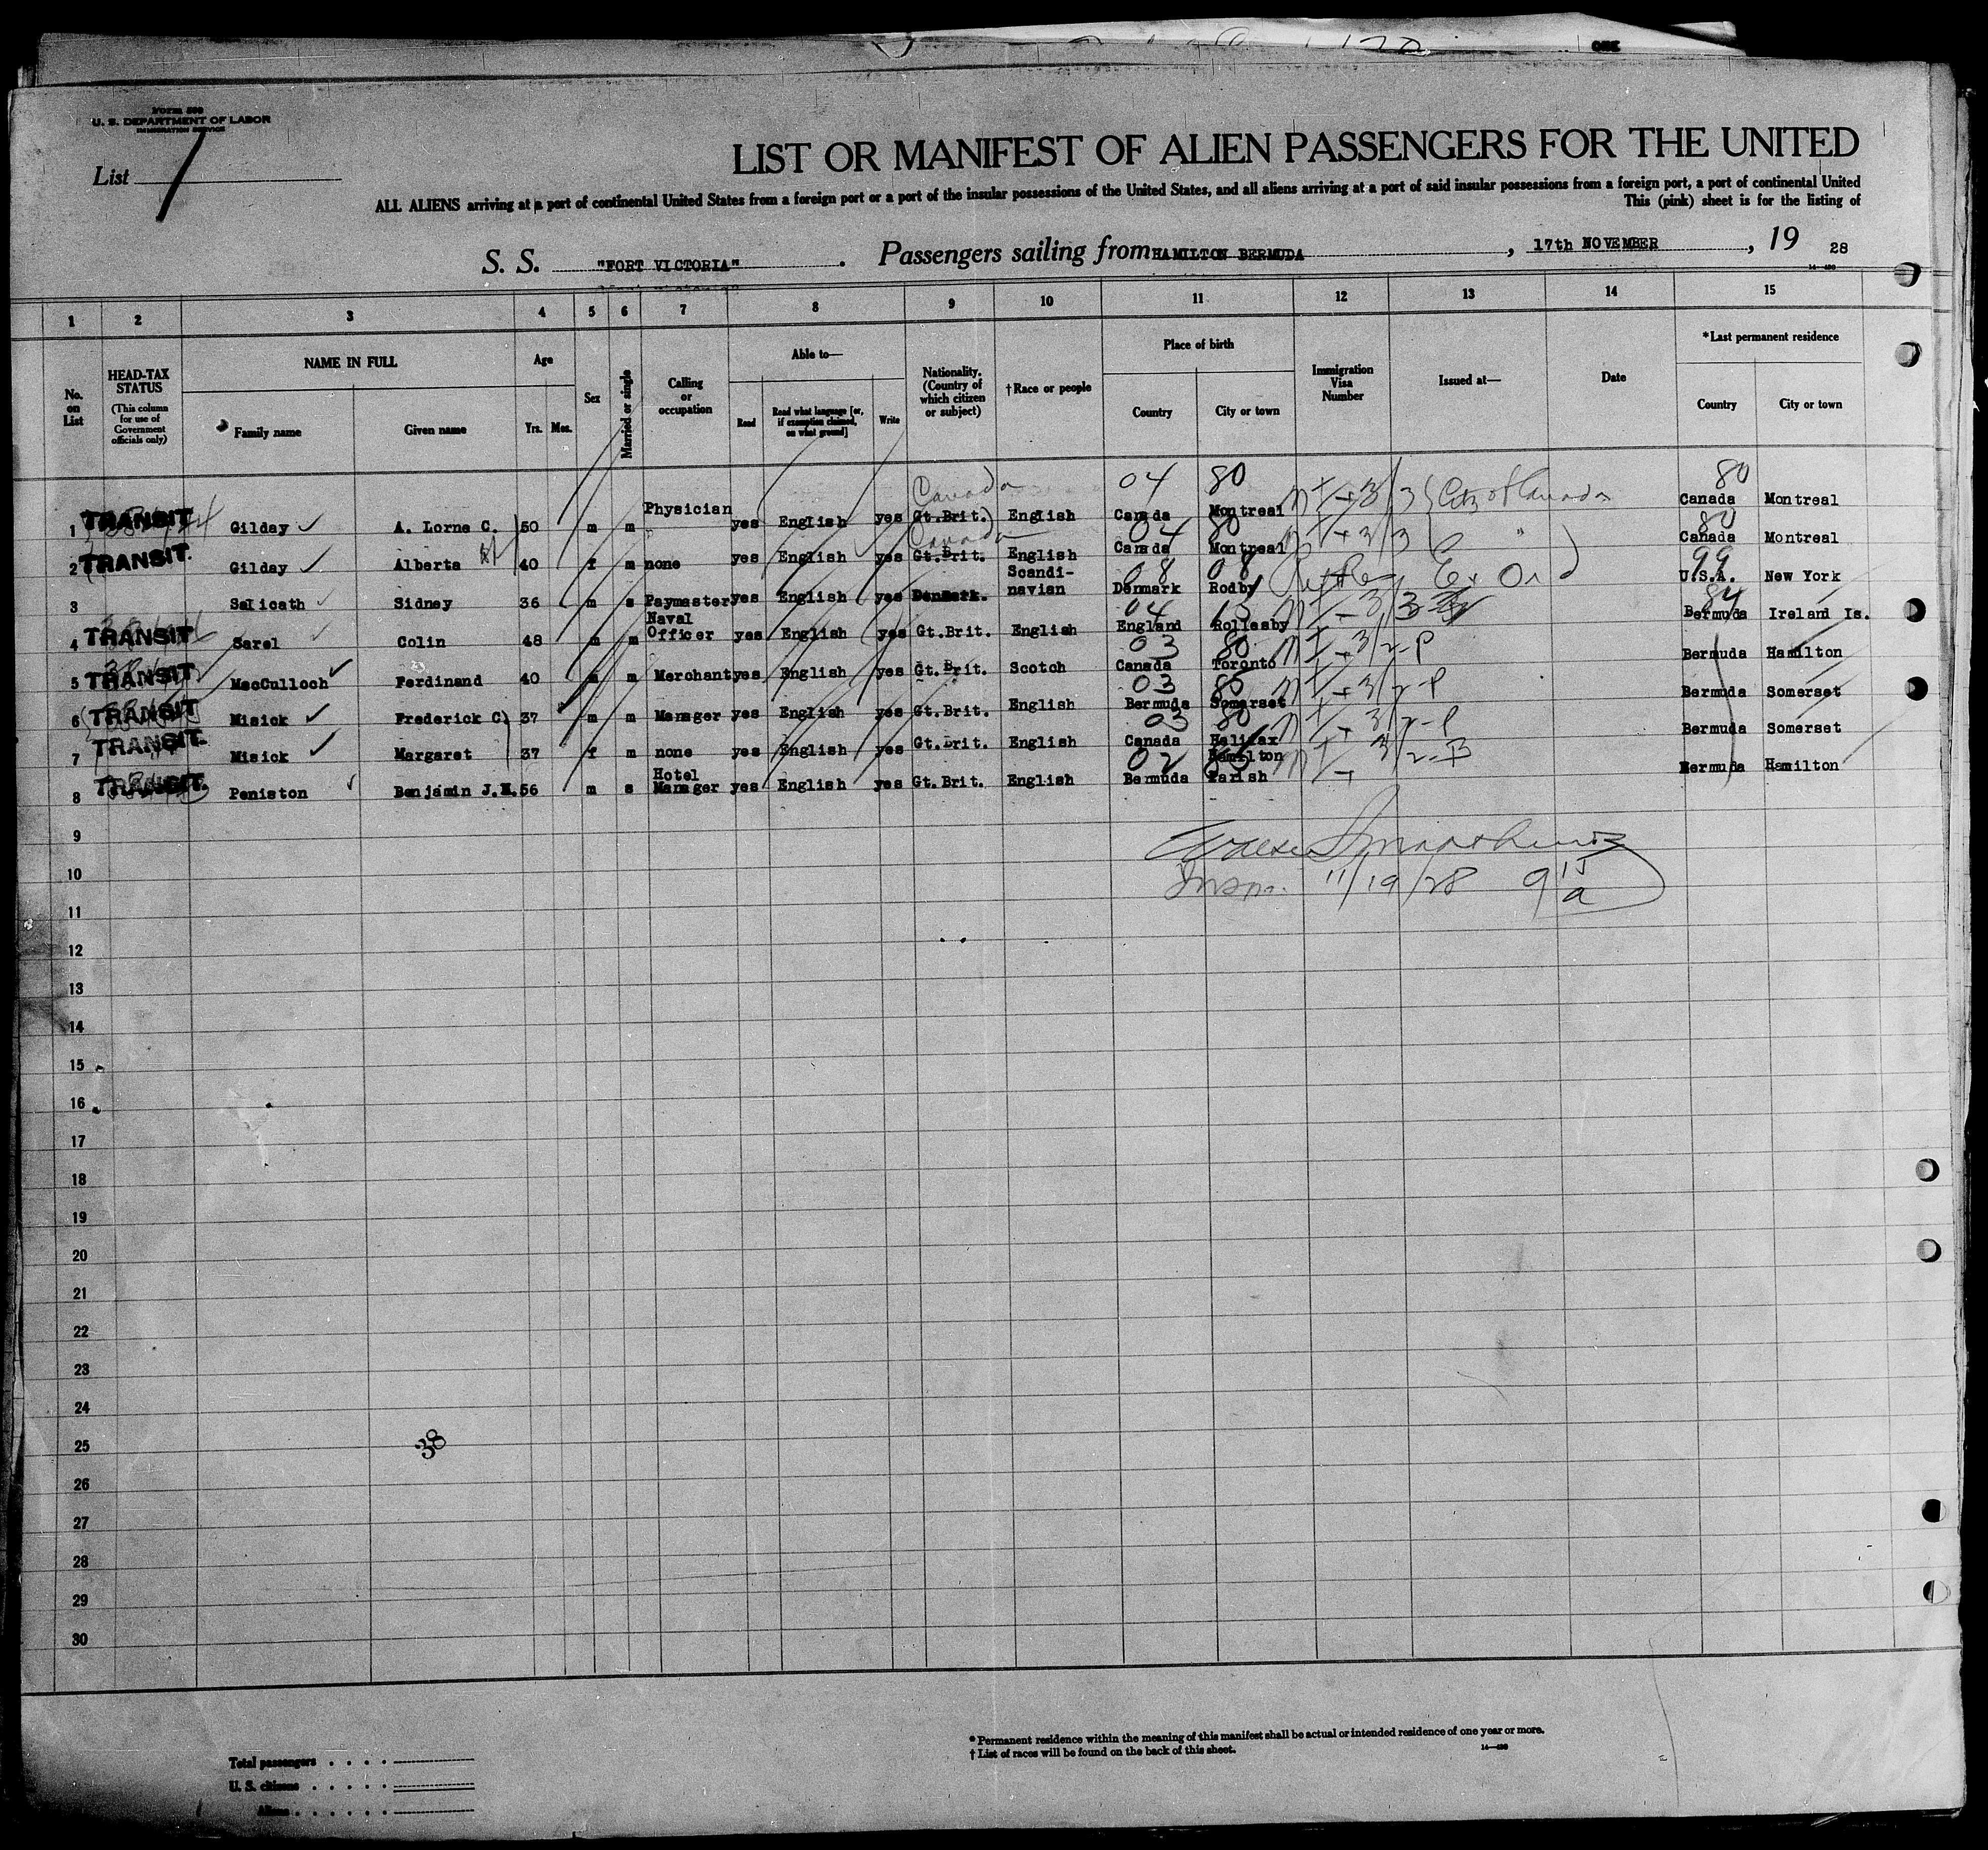 Form 500
U. S. DEPARTMENT OF LABOR
IMMIGRATION SERVICE
List 1
LIST OR MANIFEST OF ALIEN PASSENGERS FOR THE UNITED
ALL ALIENS arriving at a port of continental United States from a foreign port or a port of the insular possessions of the United States, and all aliens arriving at a port of said insular possessions from a foreign port, a port of continental United
This (pink) sheet is for the listing of
S. S. "FORT VICTORIA". Passengers sailing from HAMILTON BERMUDA, 17th NOVEMBER, 19 28
1 2 3 4 5 6 7 8 9 10 11 12 13 14 15
No. on List
HEAD-TAX STATUS (This column for use of Government officials only)
NAME IN FULL
Family name Given name
Age
Yrs. Mos.
Sex
Married or single
Calling or occupation
Able to—
Read Read what language [or, if exemption claimed, on what ground] Write
Nationality. (Country of which citizen or subject)
†Race or people
Place of birth
Country City or town
Immigration Visa Number
Issued at—
Date
*Last permanent residence
Country City or town
Canada 04 80 80
1 TRANSIT Gilday A. Lorne C. 50 m m Physician yes English yes Gt.Brit. English Canada Montreal Canada Montreal
Canada 04 80 80
2 TRANSIT. Gilday Alberta 40 f m none yes English yes Gt.Brit. English Canada Montreal Canada Montreal
08 08 99
3 Salicath Sidney 36 m s Paymaster yes English yes Denmark. Scandi-navian Denmark Rodby U.S.A. New York
04 13 84
4 TRANSIT Sarel Colin 48 m m Naval Officer yes English yes Gt.Brit. English England Rollesby Bermuda Ireland Is.
03 80
5 TRANSIT MacCulloch Ferdinand 40 m m Merchant yes English yes Gt.Brit. Scotch Canada Toronto Bermuda Hamilton
03 85
6 TRANSIT Misick Frederick C. 37 m m Manager yes English yes Gt.Brit. English Bermuda Somerset Bermuda Somerset
03 80
7 TRANSIT. Misick Margaret 37 f m none yes English yes Gt.Brit. English Canada Halifax Bermuda Somerset
02
8 TRANSIT. Peniston Benjamin J.H. 56 m s Hotel Manager yes English yes Gt.Brit. English Bermuda Hamilton Parish Bermuda Hamilton
9
Insp. 11/19/28 9 15 a
10
11
12
13
14
15
16
17
18
19
20
21
22
23
24
25
38
26
27
28
29
30
*Permanent residence within the meaning of this manifest shall be actual or intended residence of one year or more.
†List of races will be found on the back of this sheet.
Total passengers
U. S. citizens
Aliens